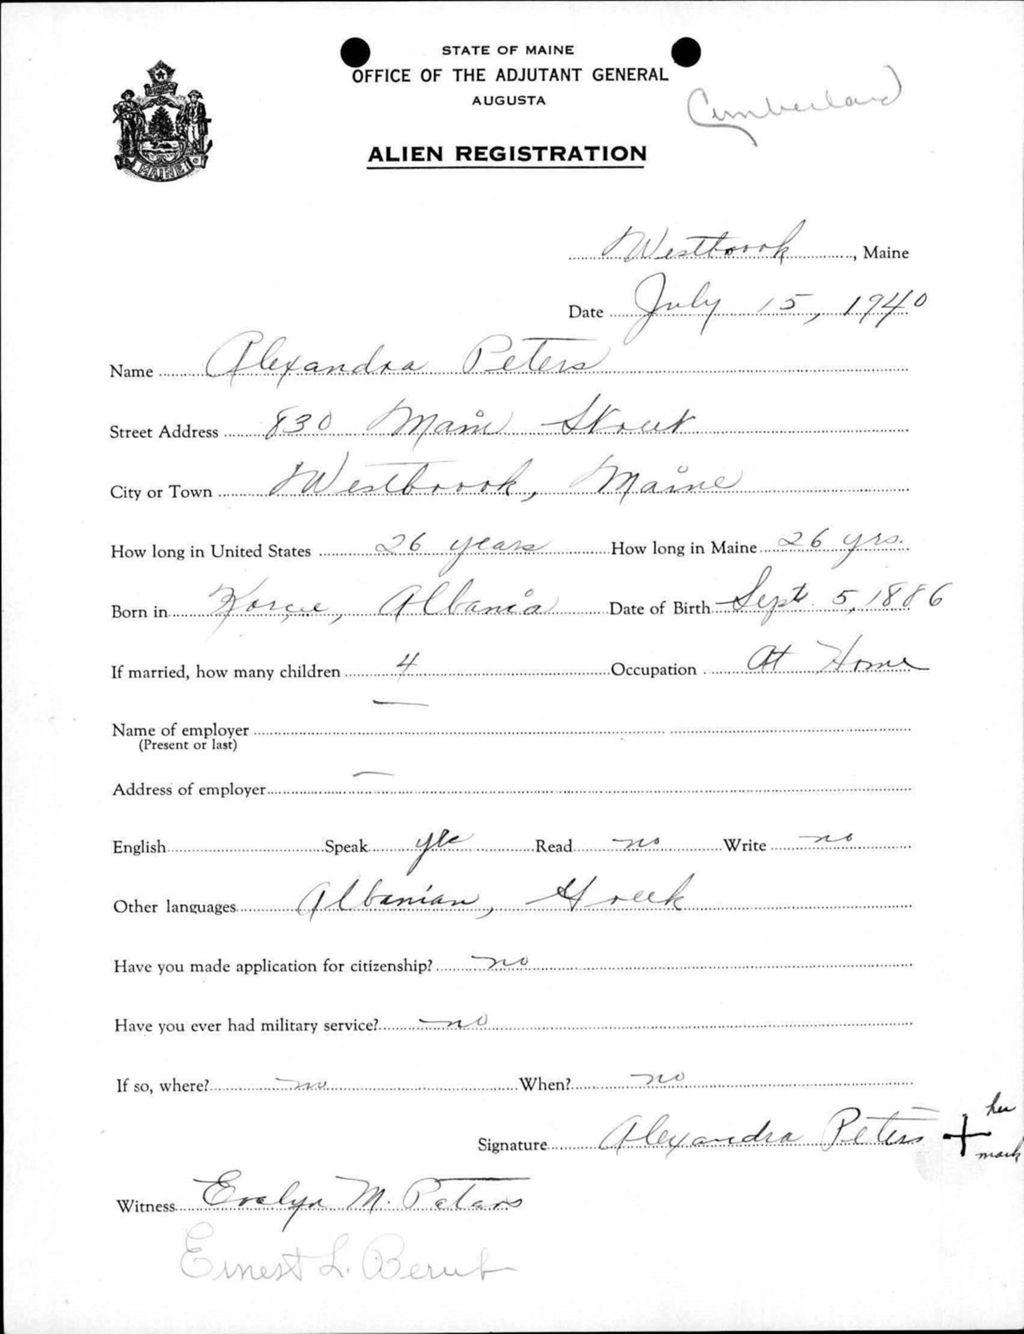 STATE OF MAINE
OFFICE OF THE ADJUTANT GENERAL
AUGUSTA
Cumberland
ALIEN REGISTRATION
MAINE
Westbrook, Maine
Date July 15, 1940
Name Alexandra Peters
Street Address 830 Main Street
City or Town Westbrook, Maine
How long in United States 26 years How long in Maine 26 yrs.
Born in Korçe, Albania Date of Birth Sept 5, 1886
If married, how many children 4 Occupation At Home
Name of employer —
(Present or last)
Address of employer —
English Speak yes Read no Write no
Other languages Albanian, Greek
Have you made application for citizenship? no
Have you ever had military service? no
If so, where? no When? no
Signature Alexandra Peters + her mark
Witness Evelyn M. Peters
Ernest L. Berub